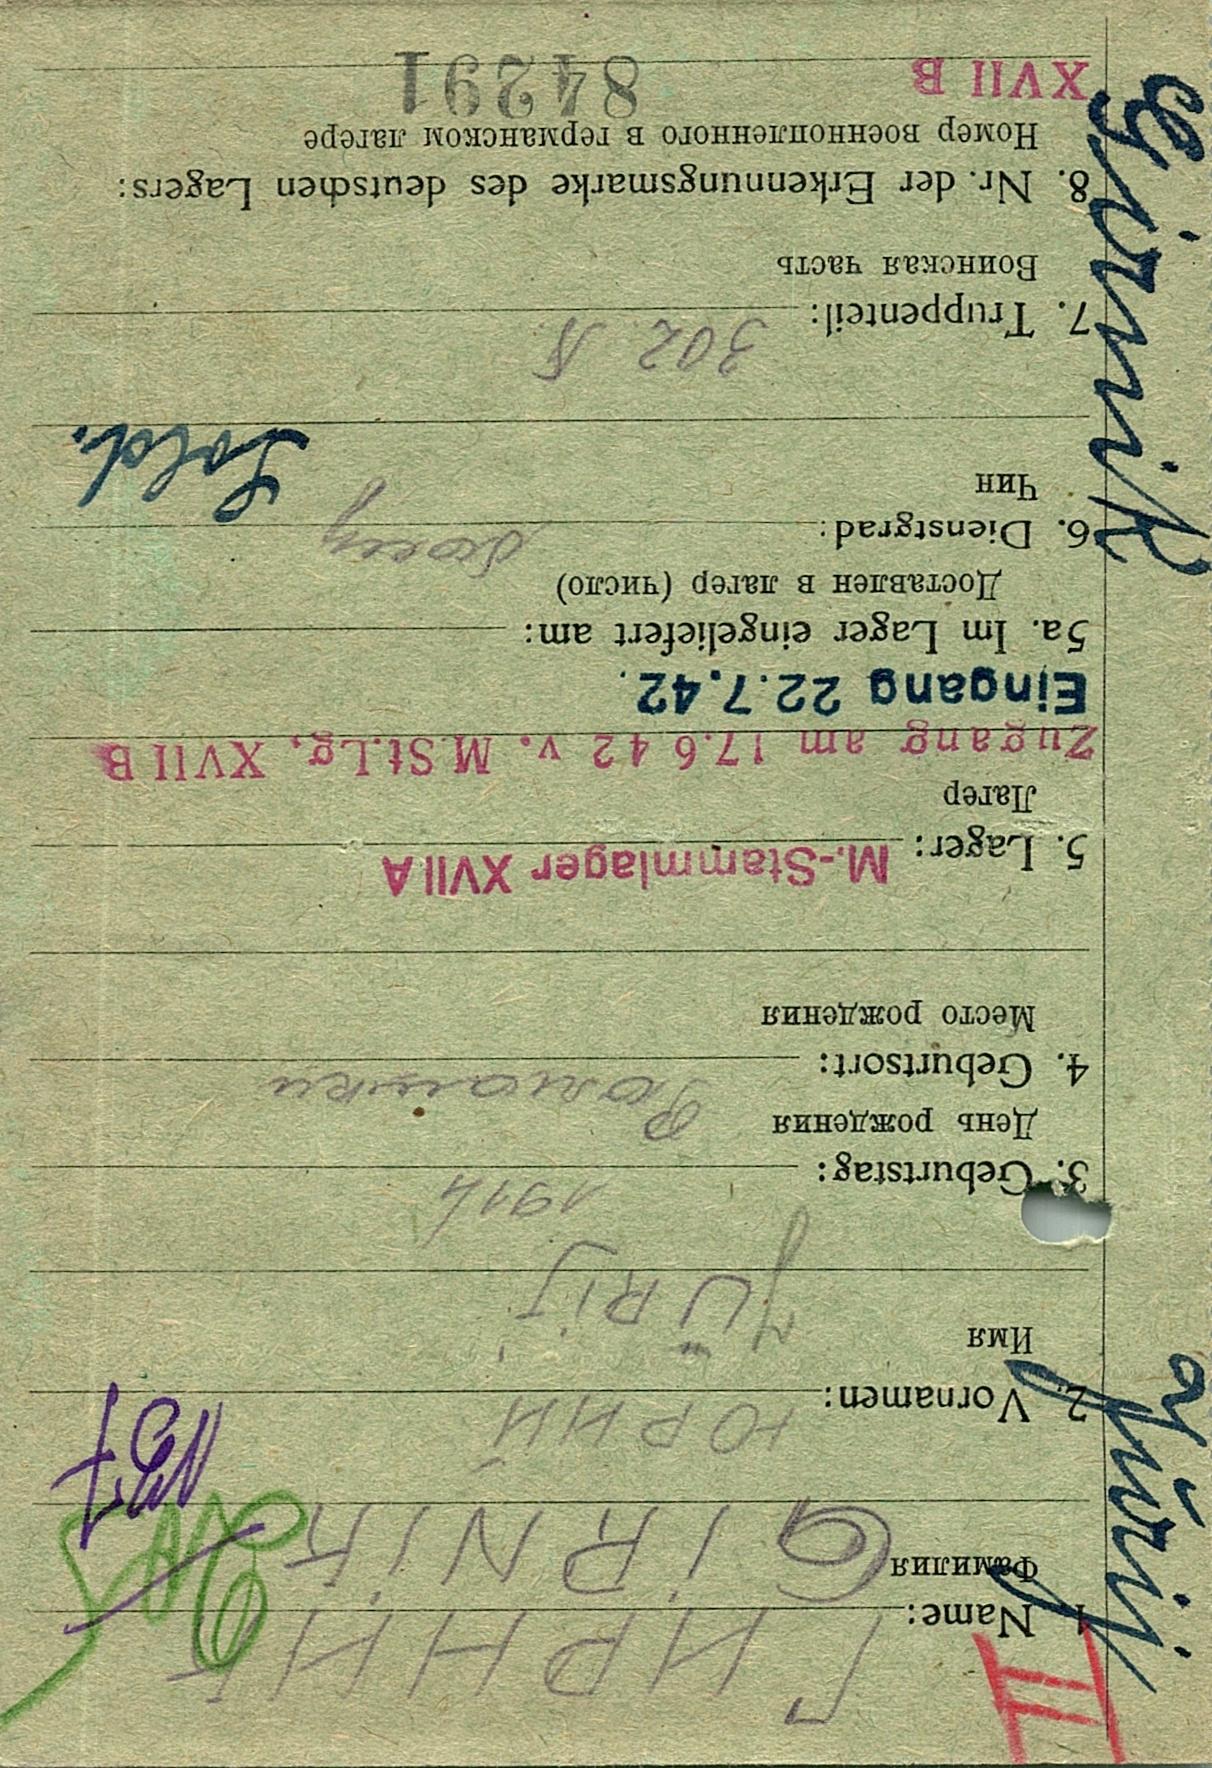 II
ГИРНИК
1. Name:
Фамилия
GIRNIK
2. Vornamen:
ЮРИЙ
Имя
JÜRIJ
3. Geburtstag:
1914
День рождения
4. Geburtsort:
Место рождения
5. Lager: M.-Stammlager XVII A
Лагер
Zugang am 17.6 42 v. M.St.Lg. XVII B
Eingang 22.7.42.
5a. Im Lager eingeliefert am:
Доставлен в лагер (число)
6. Dienstgrad:
Чин
Sold.
7. Truppenteil: 302
Воинская часть
8. Nr. der Erkennungsmarke des deutschen Lagers:
Номер военнопленного в германском лагере
XVII B 84291
Jürij
Girnik